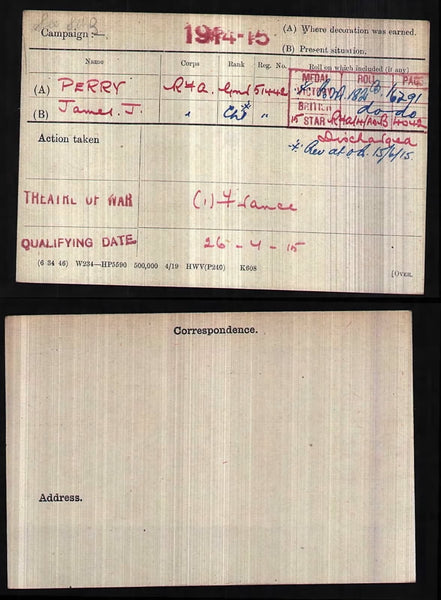 Campaign :— 1914-15 (A) Where decoration was earned.
(B) Present situation.
Corps Rank Reg. No. Roll on which included (if any)
MEDAL ROLL PAGE
(A) PERRY RHA 51442 VICTORY RHA 182B 16291
(B) James. J. " " BRITISH do do
15 STAR RHA/4/AB 4042
Action taken Discharged
* Rev at o.a. 15/6/15.
THEATRE OF WAR (1) France
QUALIFYING DATE 26 - 4 - 15
(6 34 46) W234—HP5590 500,000 4/19 HWV(P240) K608 [OVER.
Correspondence.
Address.